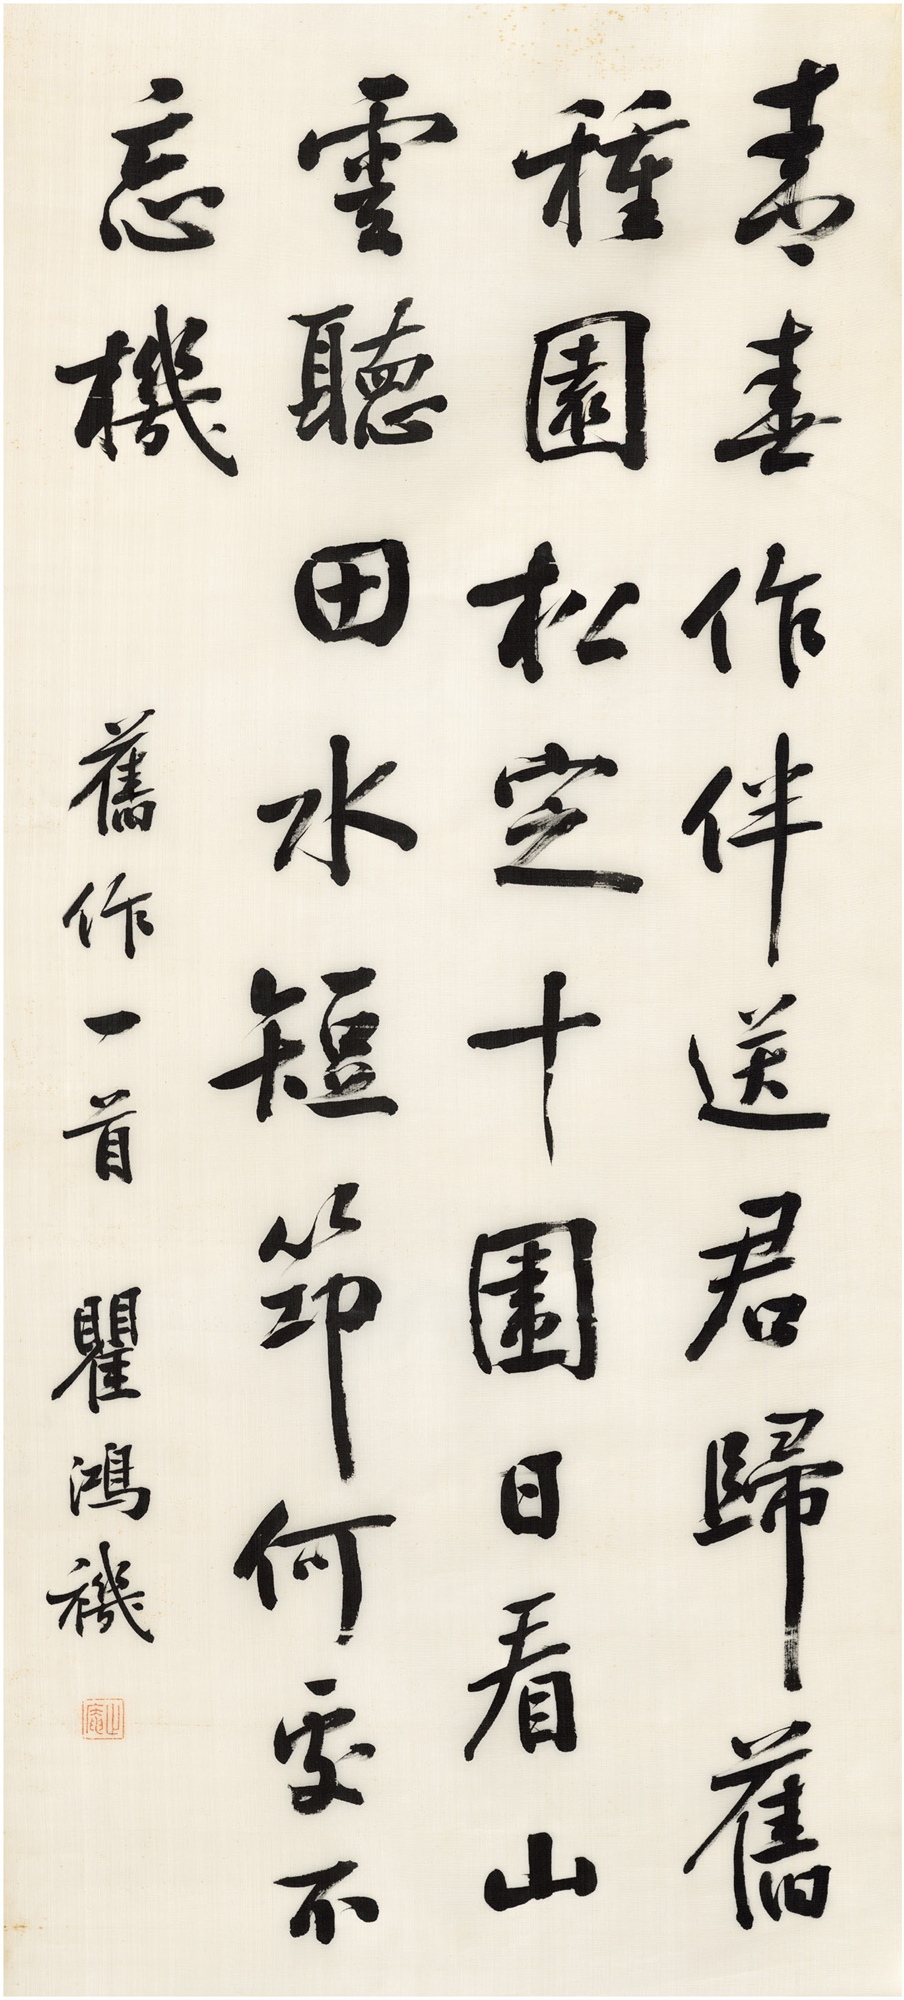 青春作伴送君歸舊
種園松定十圍日看山
雲聽田水短笻何處不
忘機
舊作一首 瞿鴻禨
止庵